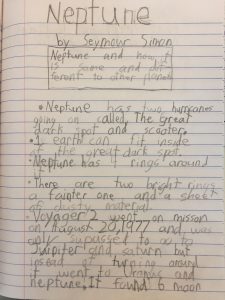 Neptune
by Seymour Simon
Neptune and how it
is same and dif
ferent to other planets
• Neptune has two hurricanes
going on called, The great
dark spot and scooter.
• 1 earth can fit inside
of the great dark spot.
• Neptune has 4 rings around
it
• There are two bright rings
a fainter one and a sheet
of dusty material
• Voyager 2 went on misson
on August 20, 1977 and was
only supassed to go to
Juipiter and saturn but
instead of turning around
it went to Uranus and
neptune. It found 6 moon